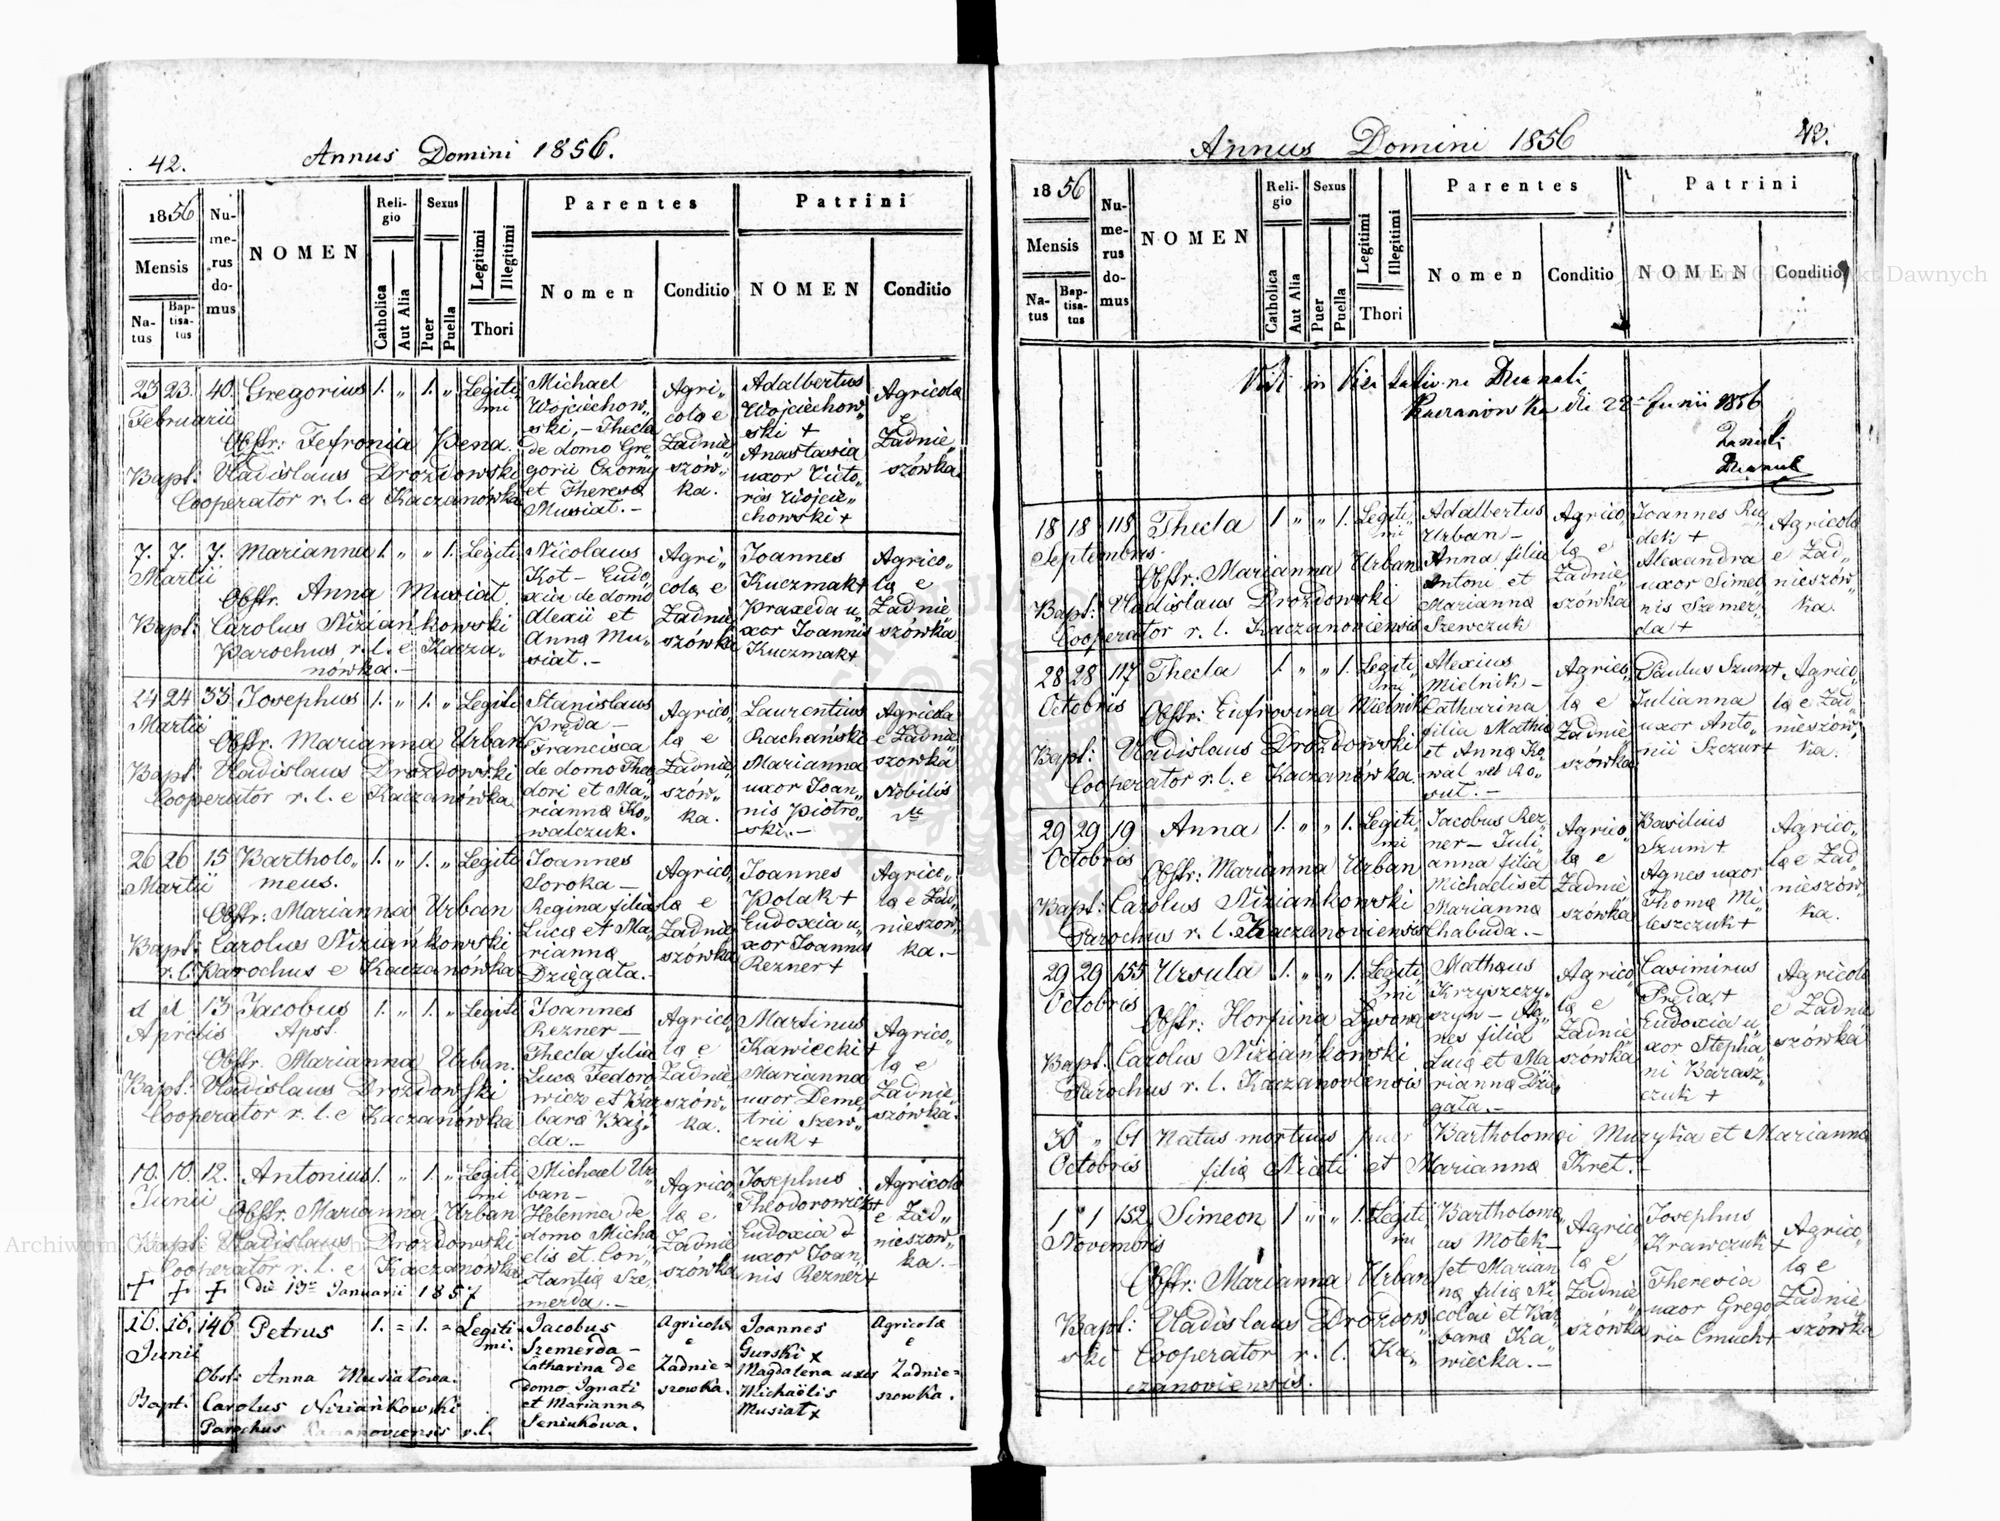 42.
Annus Domini 1856.
1856
Mensis
Natus
Baptisatus
Numerus domus
NOMEN
Religio
Catholica
Aut Alia
Sexus
Puer
Puella
Legitimi
Illegitimi
Thori
Parentes
Nomen
Conditio
Patrini
NOMEN
Conditio
23 23. 40. Gregorius 1. „ 1. „ Legiti„
mi
Februarii
Obstr: Fefronia Pena.
Bapt: Vladislaus Drozdowski
Cooperator r. l. e Kaczanówka
Michael
Wojciechow„
ski, – Thecla
de domo Gre„
gorii Czorny
et Theresa
Musiat. –
Agri„
cola e
Zadnie„
szów„
ka.
Adalbertus
Wojciechow„
ski +
Anastasia
uxor Victo„
ris Wojcie„
chowski +
Agricola
e
Zadnie„
szówka
7. 7. 7. Marianna 1. „ „ 1. Legiti
Martii
Obstr. Anna Musiat.
Bapt: Carolus Niziańkowski
Parochus r. l. e Kacza„
nówka. –
Nicolaus
Kot – Eudo„
xia de domo
Alexii et
Anna Mu„
siat. –
Agri„
cola e
Zadnie„
szówka
Joannes
Kuczmak+
Praxeda u„
xor Joannis
Kuczmak+
Agrico„
la e
Zadnie„
szówka
24 24 33 Josephus 1. „ 1. „ Legiti
Martii
Obstr. Marianna Urban
Bapt: Vladislaus Drozdowski
Cooperator r. l. e Kaczanówka.
Stanislaus
Pręda –
Francisca
de domo Theo
dori et Ma„
rianna Ko„
walczuk.
Agrico„
la e
Zadnie„
szów„
ka.
Laurentius
Rachański
Marianna
uxor Joan„
nis Piotro„
ski. –
Agricola
e Zadnie
szowka
Nobilis
26 26 15 Bartholo„ 1. „ 1. „ Legiti
Martii meus.
Obstr: Marianna Urban
Bapt: Carolus Niziańkowski
r. l. Parochus e Kaczanówka
Joannes
Soroka –
Regina filia
Luca et Ma„
rianna
Dzięgata. –
Agrico„
la e
Zadnie„
szówka
Joannes
Polak +
Eudoxia u„
xor Joannis
Rezner +
Agrico„
la e Zad„
nieszow„
ka. –
13 Jacobus 1. „ 1. „ Legiti
Aprilis Apst.
Obstr. Marianna Urban.
Bapt: Vladislaus Drozdowski
Cooperator r. l. e Kaczanówka
Joannes
Rezner –
Thecla filia
Luca Fedoro
wicz et Bar
bara Baj„
da. –
Agrico„
la e
Zadnie„
szów„
ka.
Martinus
Kawiecki +
Marianna
uxor Deme„
trii Szew„
czuk +
Agrico„
la e
Zadnie„
szówka.
10. 10. 12. Antonius 1. „ 1. „ Legiti„
mi
Junii
Obstr. Marianna Urban
Bapt: Vladislaus Drozdowski
Cooperator r. l. e Kaczanówka
+ + + die 13 Januarii 1857
Michael Ur„
ban –
Helenna de
domo Micha
elis et Con„
stantia Sze„
merda. –
Agrico„
la e
Zadnie„
szówka
Josephus
Theodorowicz+
Eudoxia +
uxor Joan„
nis Rezner +
Agricola
e Zad„
nieszow„
ka. –
16. 16. 146 Petrus 1. = 1. = Legiti
mi.
Junii
Obst: Anna Musiatowa.
Bapt: Carolus Niziańkowski
Parochus Kaczanoviensis r. l.
Jacobus
Szemerda –
Catharina de
domo Ignati
et Marianna
Seniukowa.
Agricola
e
Zadnie=
szowka.
Joannes
Gurski x
Magdalena uxor
Michaëlis
Musiat x
Agricola
e
Zadnie=
szowka.
Annus Domini 1856
43.
1856
Mensis
Natus
Baptisatus
Numerus domus
NOMEN
Religio
Catholica
Aut Alia
Sexus
Puer
Puella
Legitimi
Illegitimi
Thori
Parentes
Nomen
Conditio
Patrini
NOMEN
Conditio
Vidi in
Kaczanówka die 22 Junii 1856
18 18 118 Thecla 1 „ „ 1. Legiti„
mi
Septembris.
Obstr: Marianna Urban
Bapt: Vladislaus Drozdowski
Cooperator r. l. Kaczanoviensis
Adalbertus
Urban –
Anna filia
Antoni et
Marianna
Szewczuk
Agrico„
la e
Zadnie„
szówka
Joannes Ru
dek +
Alexandra
uxor Simeo
nis Szmer„
da +
Agricola
e Zad„
nieszów„
ka.
28 28 117 Thecla 1. „ „ 1. Legiti„
mi
Octobris
Obstr: Eufrovina Mielnik
Bapt: Vladislaus Drozdowski
Cooperator r. l. e Kaczanówka.
Alexius
Mielnik –
Catharina
filia Mathia
et Anna Ko„
wal vel Ko„
wut. –
Agrico„
la e
Zadnie„
szówka
Paulus Szum+
Julianna
uxor Anto„
nii Szczur+
Agrico„
la e Zad„
nieszów„
ka.
29 29 19 Anna 1. „ „ 1. Legiti„
mi
Octobris
Obstr: Marianna Urban
Bapt: Carolus Niziańkowski
Parochus r. l. Kaczanoviensis
Jacobus Rez„
ner – Juli„
anna filia
Michaelis et
Marianna
Chabuda. –
Agrico„
la e
Zadnie„
szówka
Basilius
Szum +
Agnes uxor
Thoma Mi„
leszczuk +
Agrico„
la e Zad„
nieszów„
ka.
29 29 155 Ursula 1. „ „ 1. Legiti„
mi
Octobris
Obstr: Horpina
Bapt: Carolus Niziańkowski
Parochus r. l. Kaczanoviensis
Mathaus
Krzyszczy„
szyn – Ag„
nes filia
Luca et Ma
rianna Dzię
gata. –
Agrico„
la e
Zadnie„
szówka
Casimirus
Pręda +
Eudoxia u„
xor Stepha„
ni Barasz„
czuk +
Agricola
e Zadnie
szówka
30 „ 61 Natus mortuus puer Bartholomei Muzyka et Marianna
Octobris filia Nicoti et Marianna Kret. –
1 1 152 Simeon 1 „ „ 1. Legiti„
mi
Novembris
Obstr: Marianna Urban
Bapt: Vladislaus Drozdow„
ski Cooperator r. l. Ka„
czanoviensis.
Bartholoma„
us Motek –
et Marian
na filia Ni
colai et Bar
bara Ka„
wiecka. –
Agrico„
la e
Zadnie„
szówka
Josephus
Krawczuk +
Theresia
uxor Grego
rii Cmuch+
Agrico„
la e
Zadnie„
szówka
Archiwum Główne Akt Dawnych